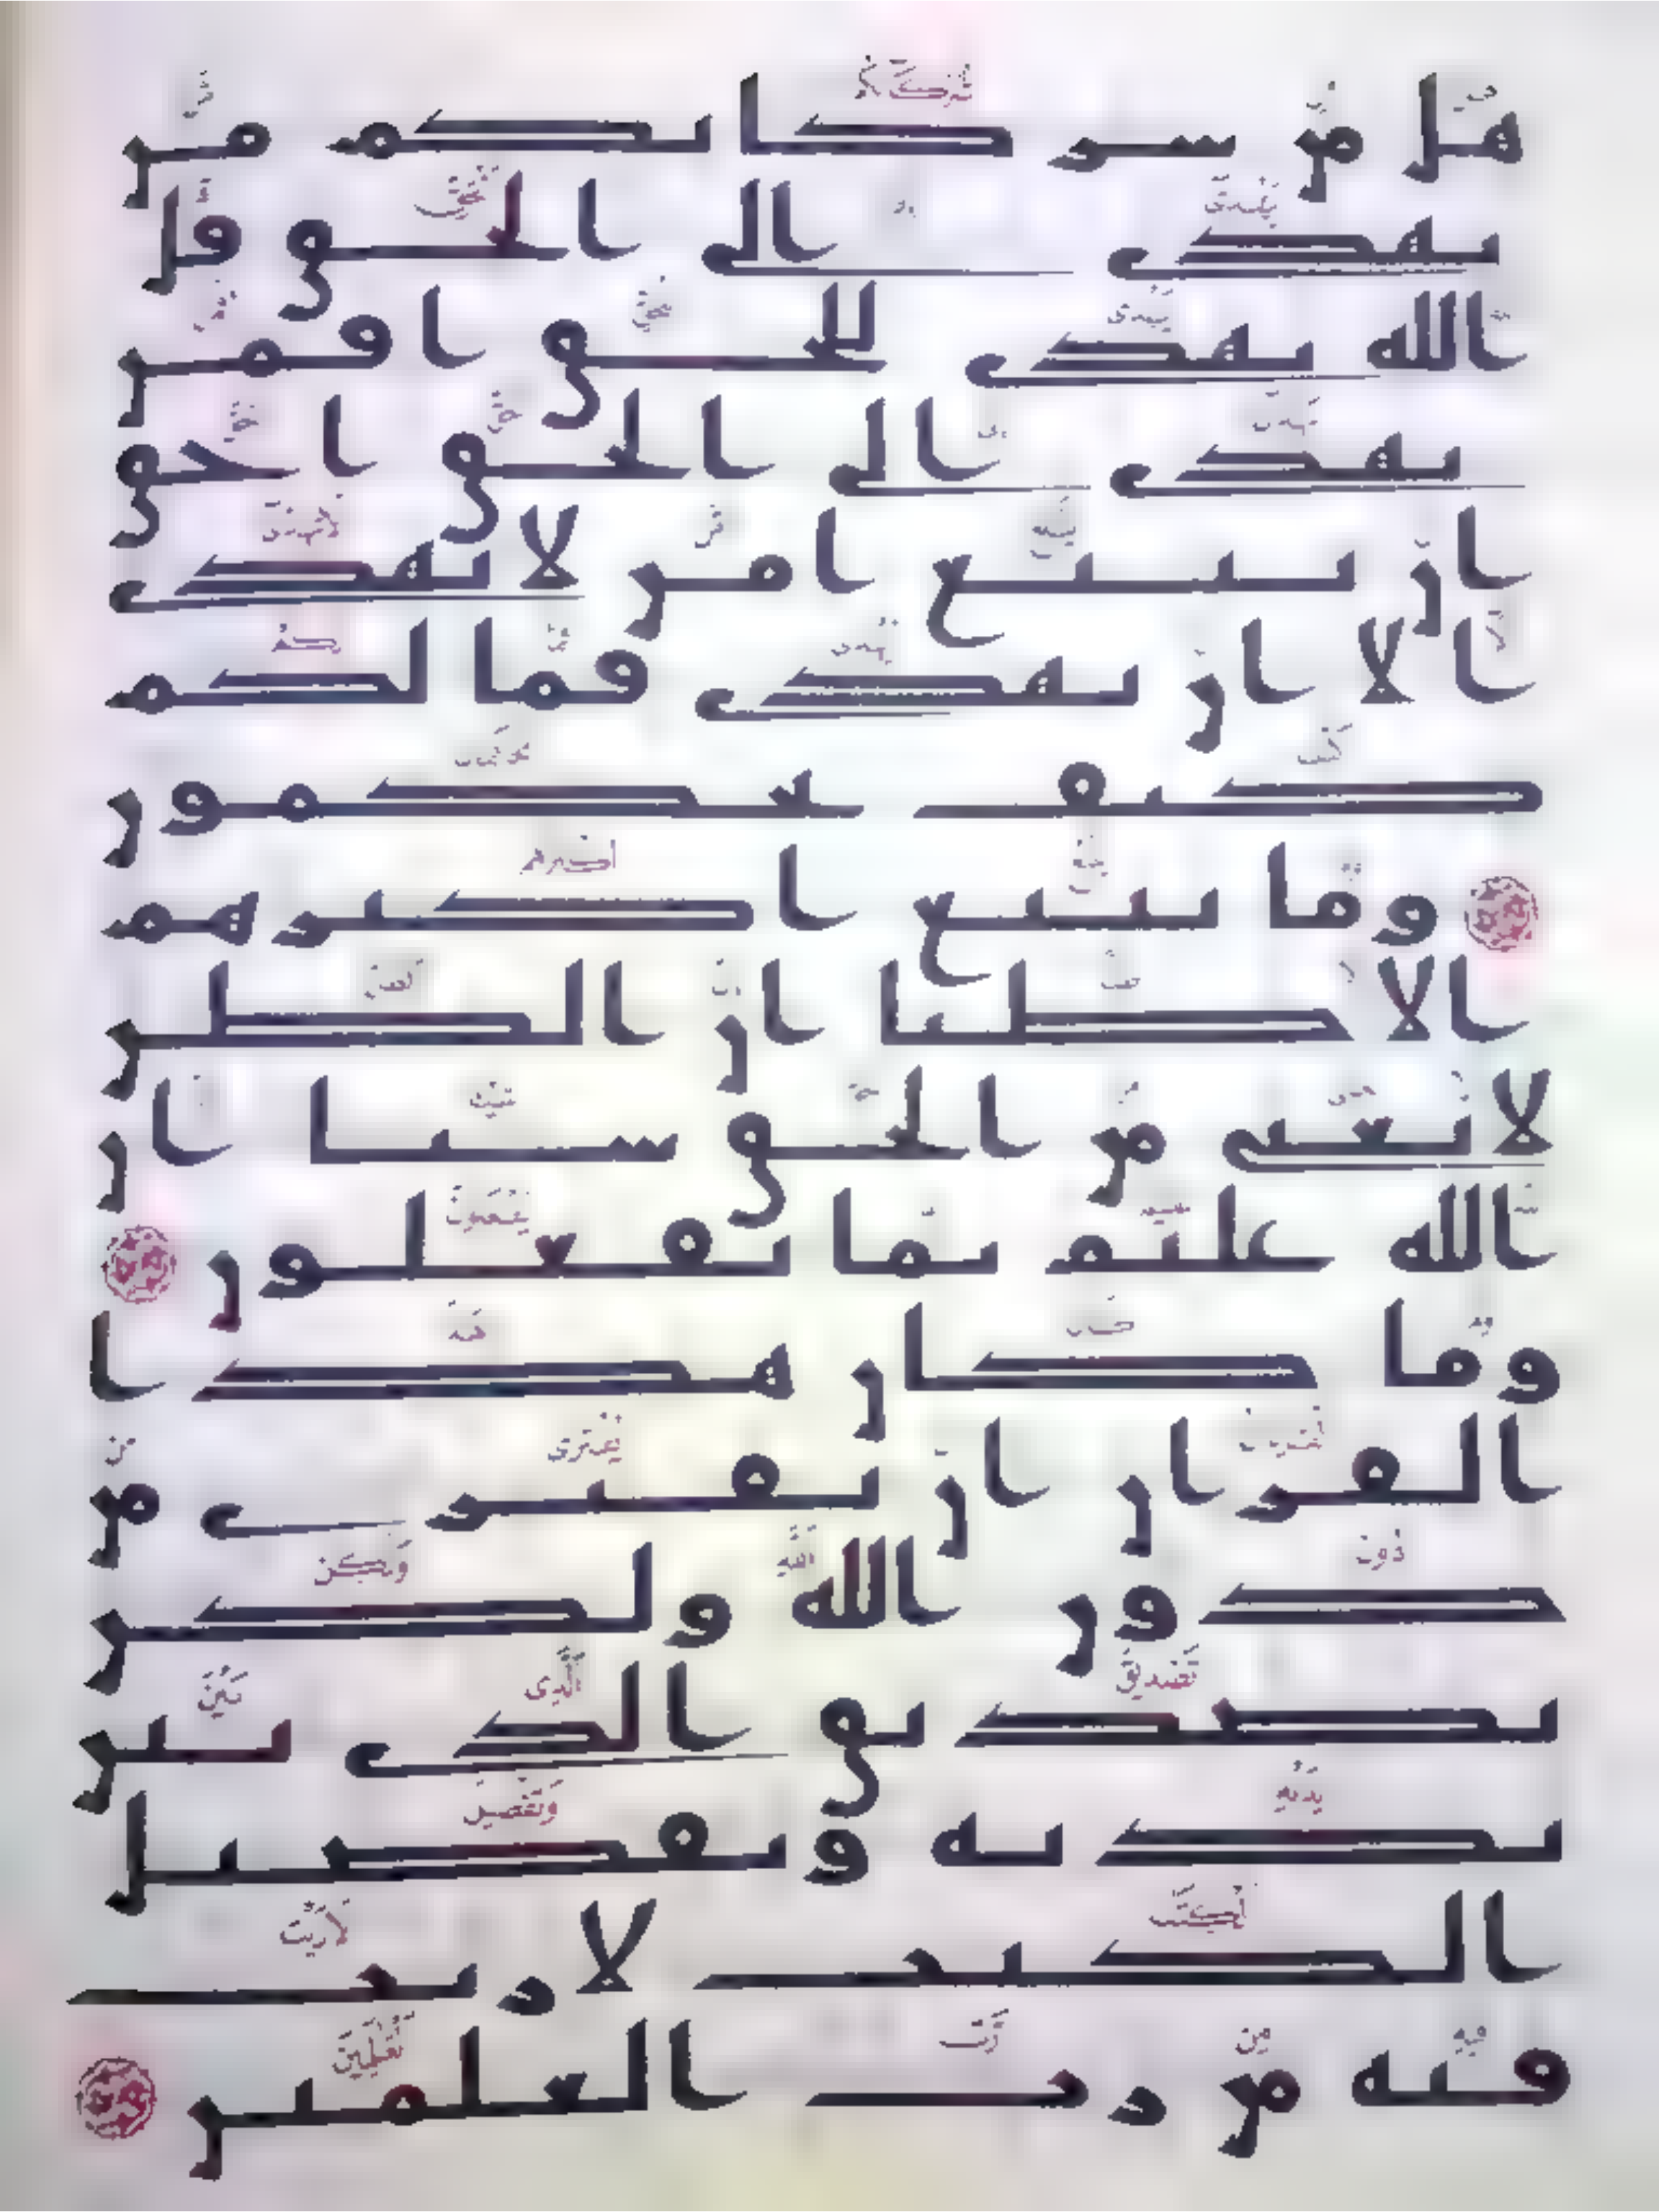 هل من شركائكم من
يهدى الى الحق قل
الله يهدى للحق افمن
يهدى الى الحق احق
ان يتبع امن لا يهدى
الا ان يهدى فما لكم
كيف تحكمون
وما يتبع اكثرهم
الا ظنا ان الظن
لا يغنى من الحق شيئا ان
الله عليم بما يفعلون
وما كان هذا
القران ان يفترى من
دون الله ولكن
تصديق الذى بين
يديه وتفصيل
الكتب لا ريب
فيه من رب العلمين